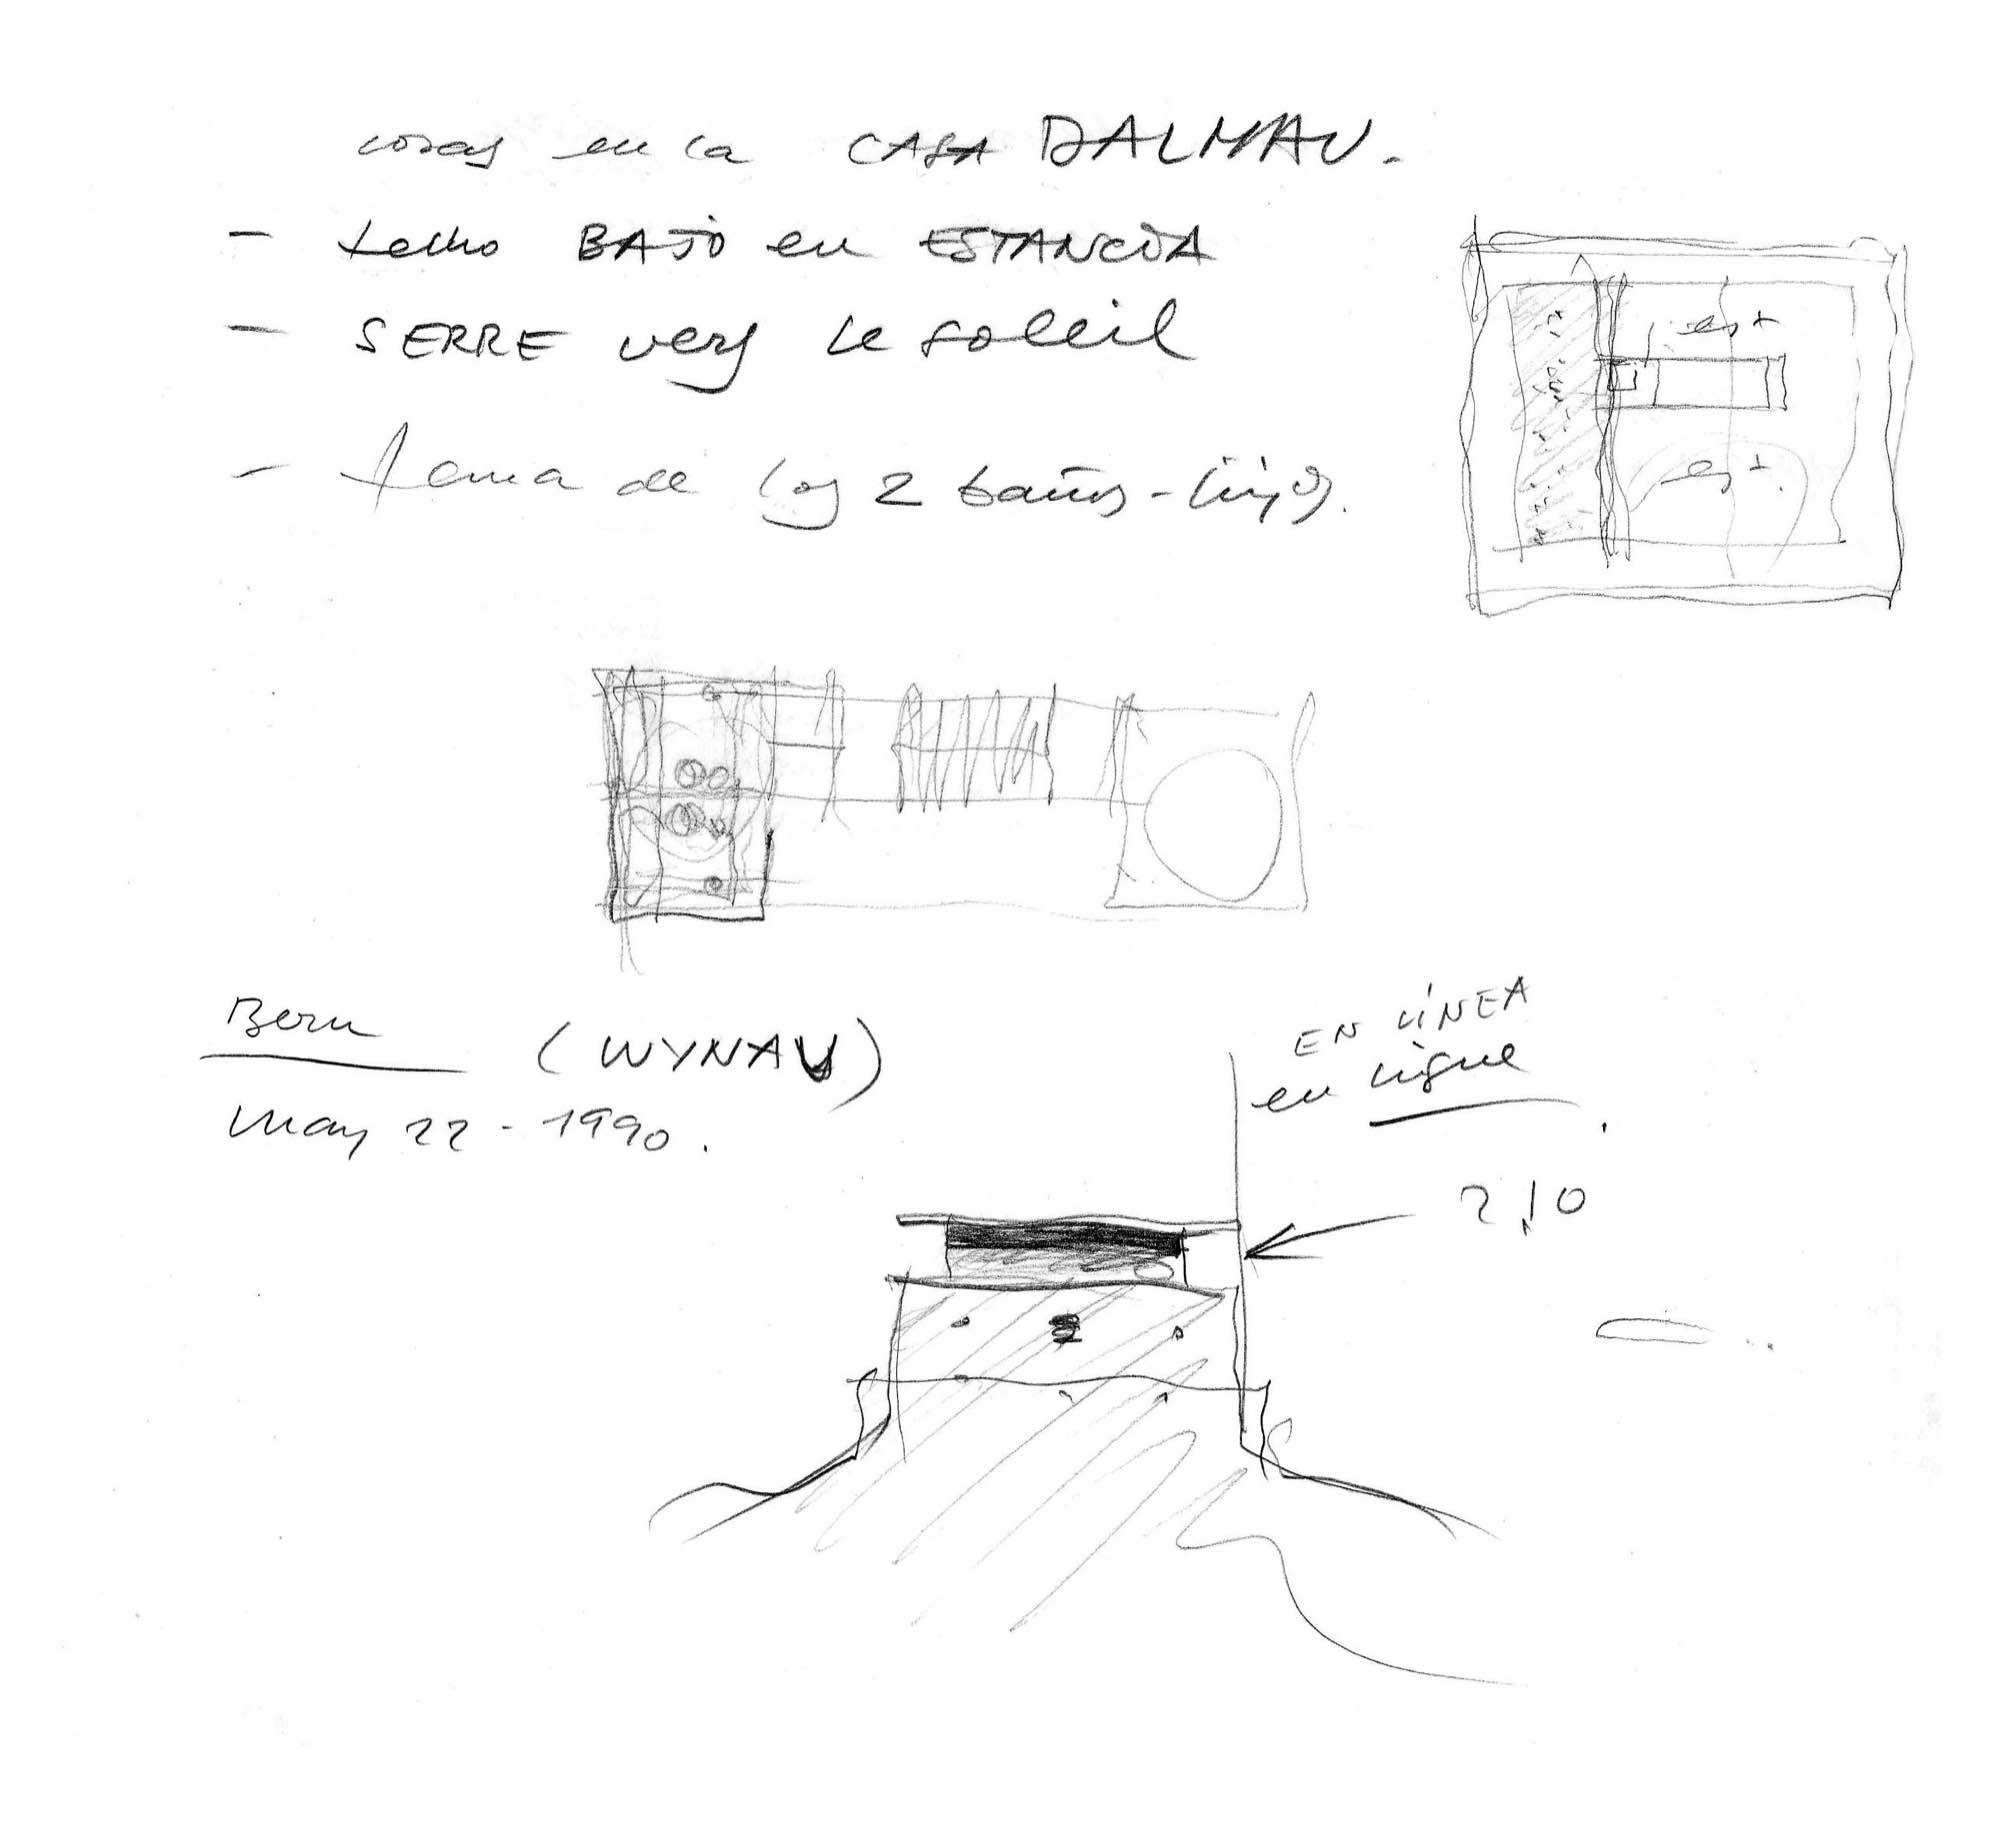 cosas en la CASA DALMAU.
- techo BAJO en ESTANCIA
- SERRE vers le soleil
- tema de los 2 baños - hijos.
est
est.
Bern (WYNAU)
may 22 - 1990.
EN LÍNEA
en ligne
2,10